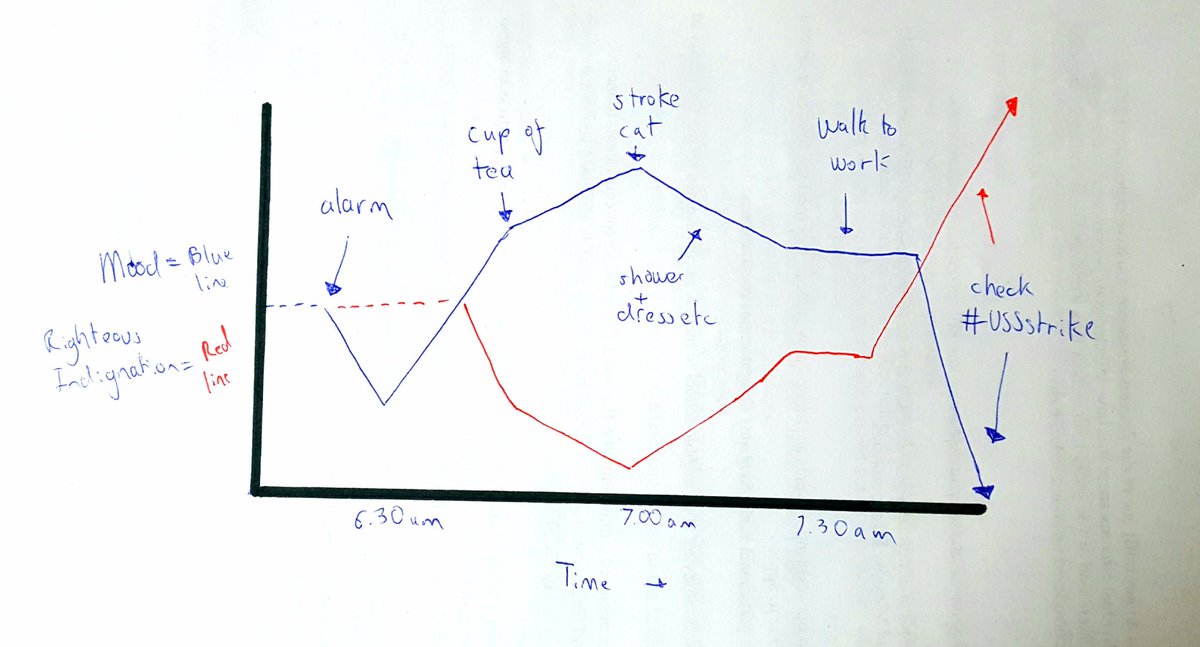 stroke
cat
cup of
tea
Walk to
work
alarm
Mood = Blue
line
shower
+
dress etc
check
#USSstrike
Righteous
Indignation = Red
line
6.30am
7.00am
7.30am
Time →